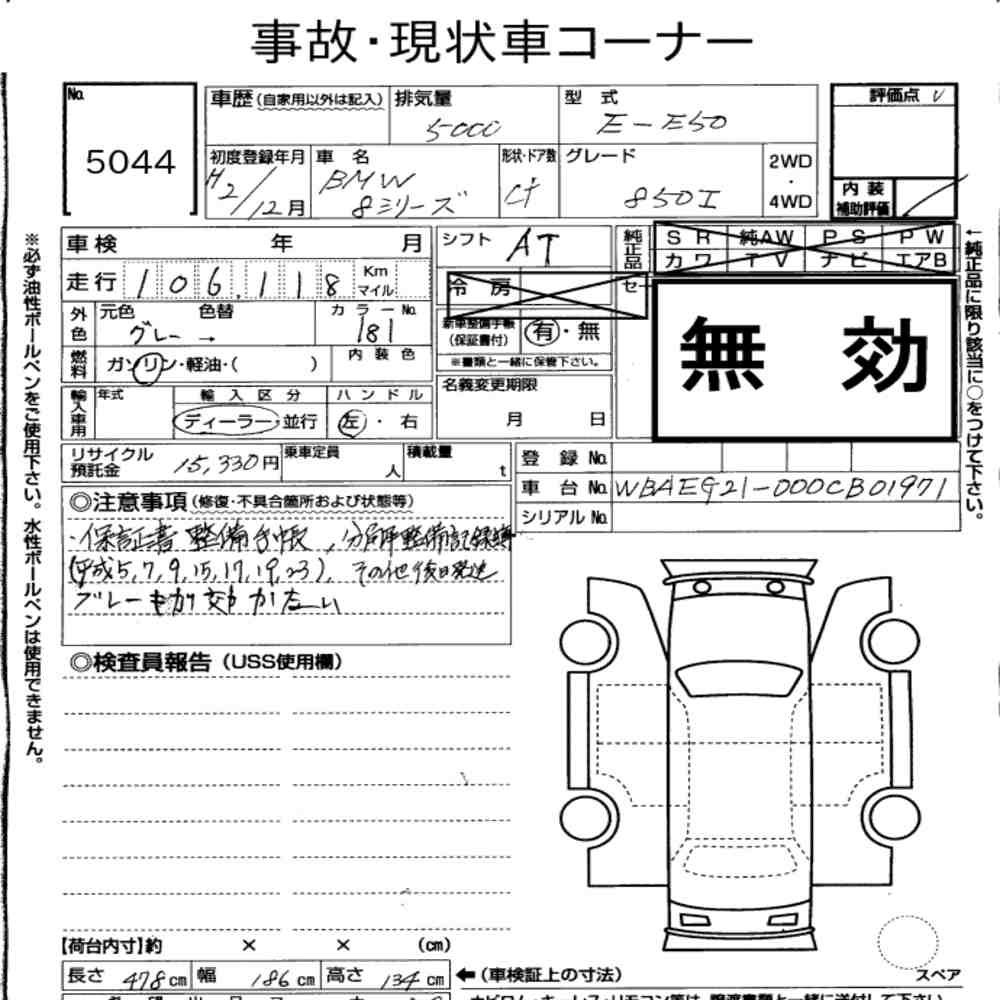 事故・現状車コーナー
No. 5044
車歴(自家用以外は記入) 排気量 5000 型式 E-E50
評価点
初度登録年月 H2/12月 車名 BMW 8シリーズ 形状・ドア数 グレード 850I 2WD・4WD
内装補助評価
車検 年 月
シフト AT
純正品 SR 純AW PS PW
カワ TV ナビ エアB
走行 106,118 Km マイル
冷房
セ
無効
外色 元色 グレー 色替 → カラーNo. 181
新車整備手帳(保証書付) 有・無
※書類と一緒に保管下さい。
燃料 ガソリン・軽油・( ) 内装色
名義変更期限 月 日
輸入車用 年式 輸入区分 ディーラー・並行 ハンドル 左・右
リサイクル預託金 15,330円 乗車定員 人 積載量 t
登録No.
車台No. WBAEG21-000CB01971
シリアルNo.
◎注意事項(修復・不具合箇所および状態等)
・保証書 整備手帳、分解整備記録簿
(平成5,7,9,15,17,19,23)、その他後日発送
ブレーキ
◎検査員報告(USS使用欄)
※必ず油性ボールペンをご使用下さい。水性ボールペンは使用できません。
←純正品に限り該当に○をつけて下さい。
【荷台内寸】約 × × (cm)
長さ 478cm 幅 186cm 高さ 134cm
←(車検証上の寸法)
スペア